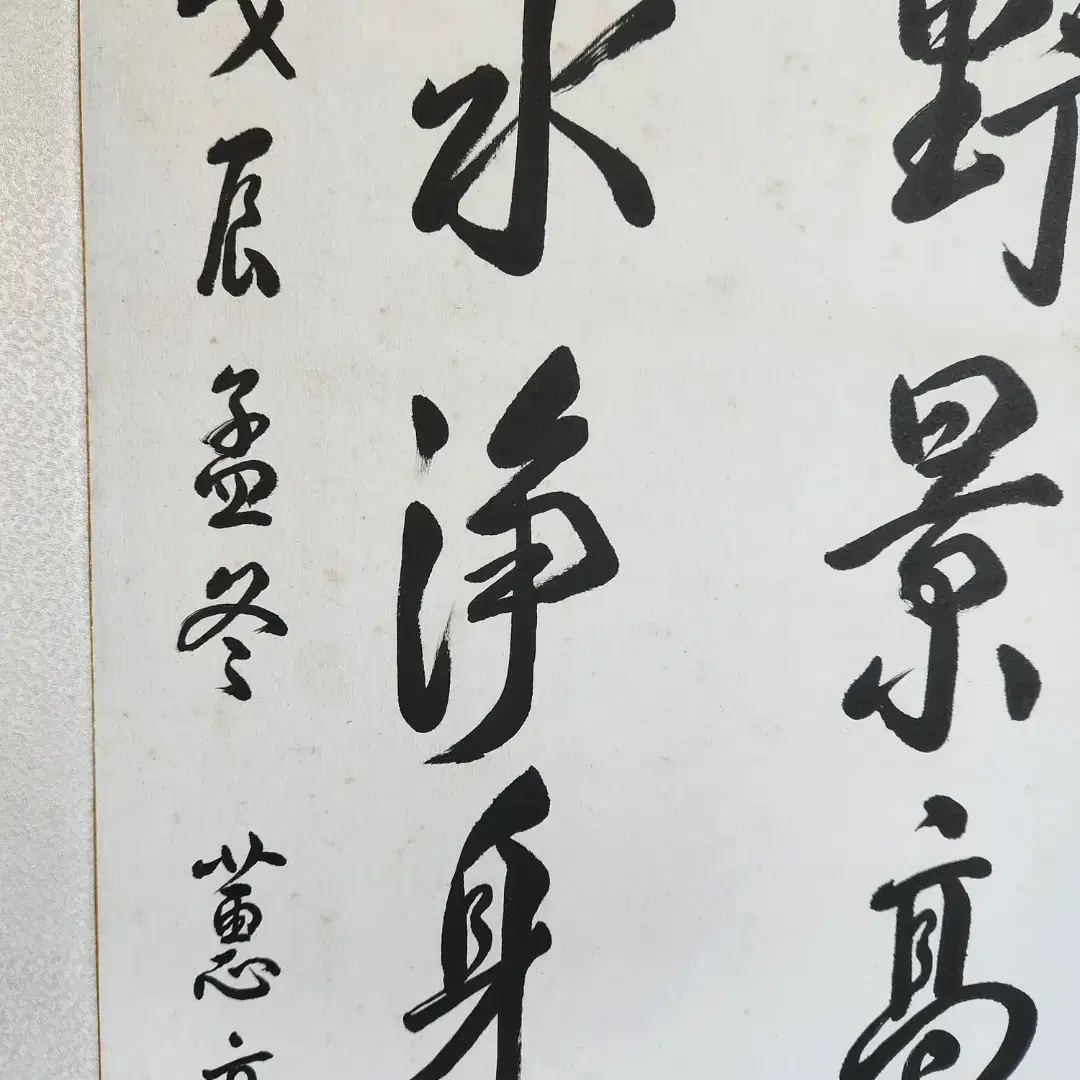 野景高
水淨身
戊辰孟冬 蕙